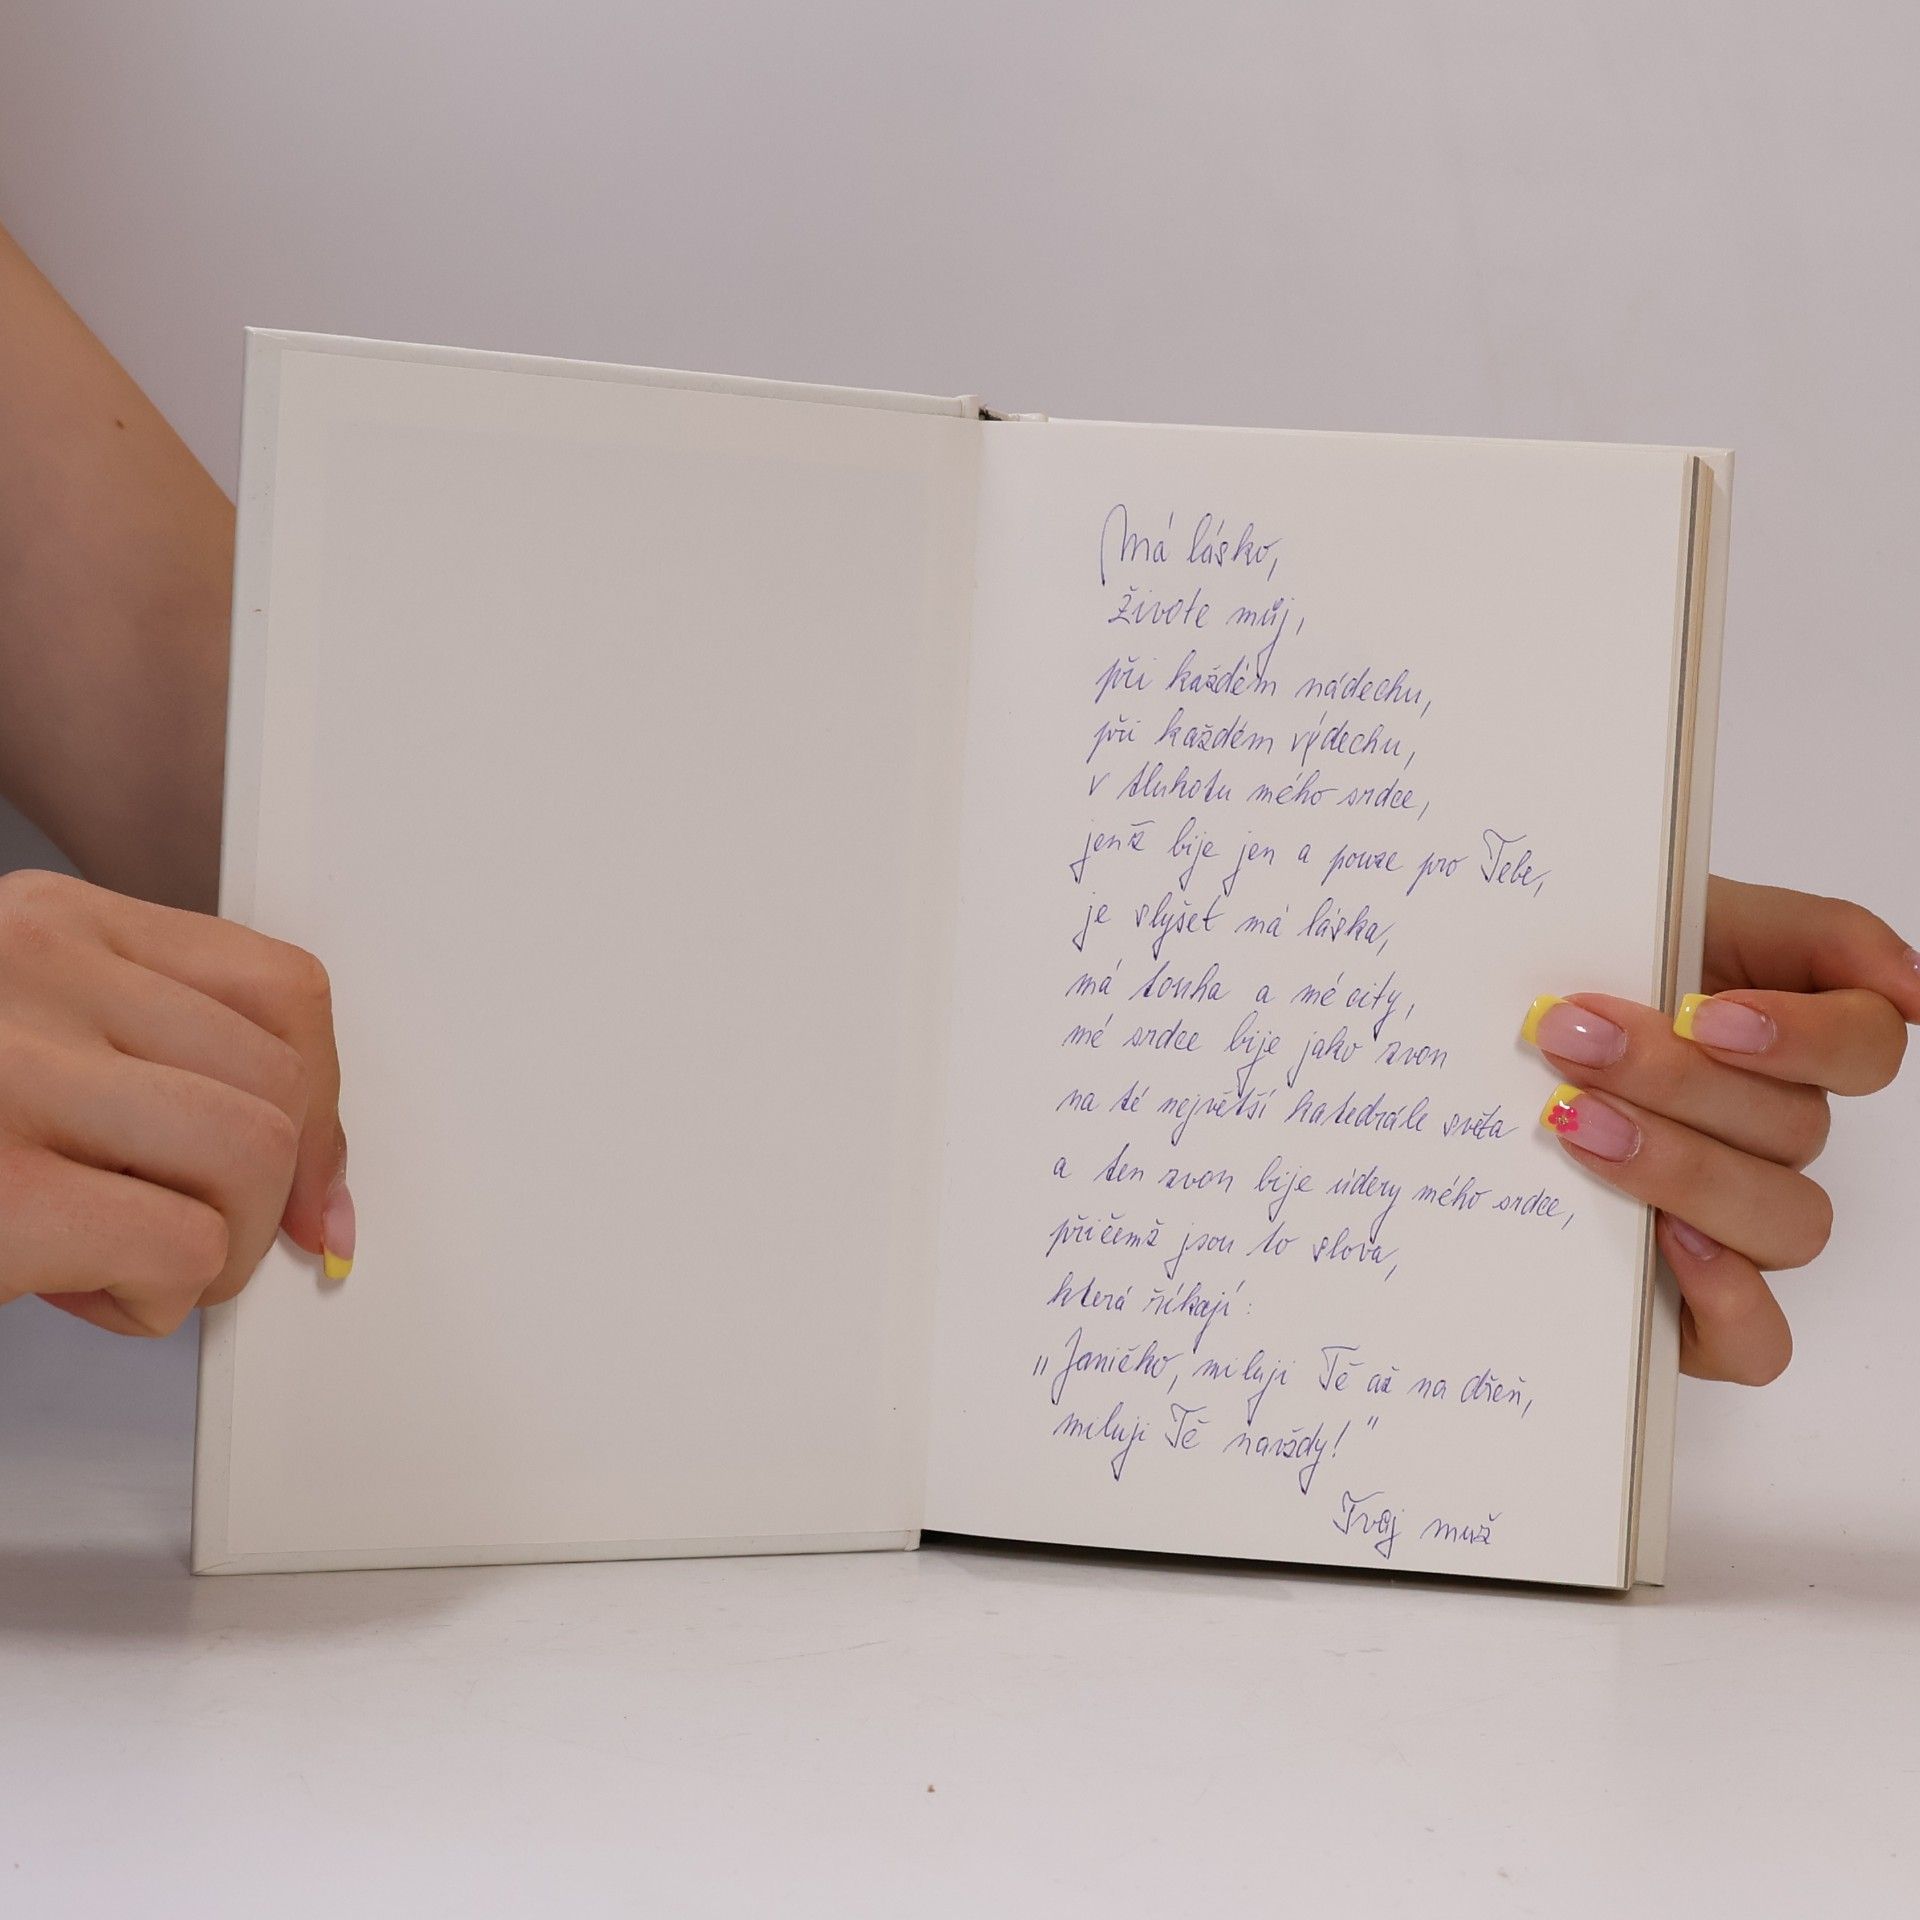 Má lásko,
živote můj,
při každém nádechu,
při každém výdechu,
v tlukotu mého srdce,
jenž bije jen a pouze pro Tebe,
je slyšet má láska,
má touha a mé city,
mé srdce bije jako zvon
na té největší katedrále světa
a ten zvon bije údery mého srdce,
přičemž jsou to slova,
která říkají:
„Janičko, miluji Tě až na dřeň,
miluji Tě navždy!"
Tvůj muž